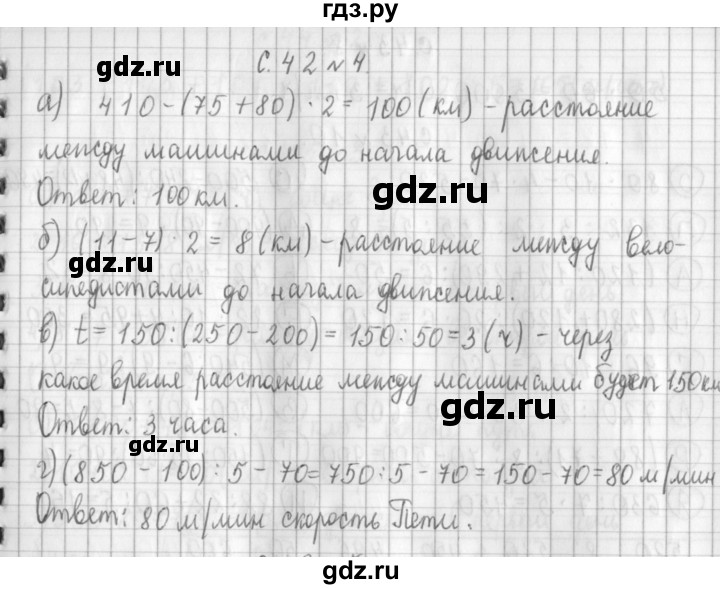 гдз.ру
с. 42 №4.
gdz.ru
а) 410-(75+80)·2=100(км) - расстояние
между машинами до начала движения.
gdz.ru
Ответ: 100 км.
б) (11-7)·2=8(км) - расстояние между вело-
gdz.ru
сипедистами до начала движения.
в) t=150:(250-200)=150:50=3(ч) - через
какое время расстояние между машинами будет 150км
gdz.ru
Ответ: 3 часа.
gdz.ru
г) (850-100):5-70=750:5-70=150-70=80 м/мин
Ответ: 80 м/мин скорость Пети.
gdz.ru